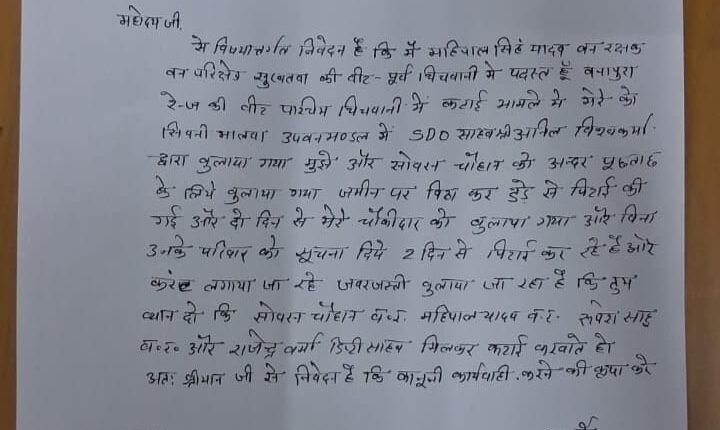 महोदय जी,
मे विषयान्तर्गत निवेदन है कि मैं महिपाल सिंह यादव वन रक्षक
वन परिक्षेत्र सुखतवा की वीट - पूर्व पिपवानी मे पदस्त हूँ वनापुरा
रेन्ज की वीट पश्चिम में कटाई मामले मे मेरे को
सिवनी मालवा उपवनमण्डल में SDO साहब श्री अनिल विश्वकर्मा
द्वारा वुलाया गया मुझे और सोवरन चौहान को अन्दर पूछताछ
के लिये वुलाया गया जमीन पर विठा कर डंडे से पिटाई की
गई और दो दिन से मेरे चौकीदार को वुलाया गया और विना
उनके परिवार को सूचना दिये 2 दिन से पिटाई कर रहे है और
करंट लगाया जा रहे जवरजस्ती वुलाया जा रहा है कि तुम
व्यान दो कि सोवरन चौहान व.र. महिपाल यादव व.र. साहु
व.र. और राजेन्द्र वर्मा डिप्टी साहव मिलकर कटाई करवाते हो
अतः श्रीमान जी से निवेदन है कि कानूनी कार्यवाही करने की कृपा करे